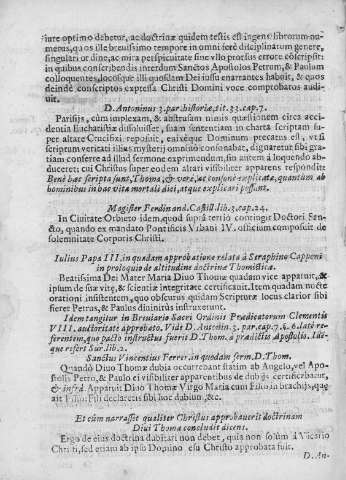 iure optimo debetur, ac doctrinæ quidem testis est ingens librorum numerus, quos ille breuissimo tempore in omni ferè disciplinarum genere,
singulari ordine, ac mira perspicuitate sine vllo prorsus errore cōscripsit:
in quibus conscribendis interdum Sanctos Apostolos Petrum, & Paulum
colloquentes, locosque illi quosdam Dei iussu enarrantes habuit, & quos
deinde conscriptos expressa Christi Domini voce comprobatos audiuit.
D. Antoninus 3. par. historiæ, tit. 23. cap. 7.
Parisijs, cum implexam, & abstrusam nimis quæstionem circa accidentia Eucharistiæ dissoluisset, suam sententiam in charta scriptam super altare Crucifixi reposuit, enixèque Dominum precatus est, vt si
scriptum veritati illius mysterij omnino consonabat, dignaretur sibi gratiam conferre ad illud sermone exprimendum, sin autem à loquendo abduceret: cui Christus super eodem altari visibiliter apparens respondit
Benè hæc scripta sunt, Thoma, & verè, ac congruè explicata, quantum ab
hominibus in hac vita mortali dici, atque explicari possunt.
Magister Ferdinand. Castill. lib. 3. cap. 24.
In Ciuitate Orbieto idem, quod supra tertiò contingit Doctori Sancto, quando ex mandato Pontificis Vrbani IV. officium composuit de
solemnitate Corporis Christi.
Iulius Papa III. in quadam approbatione relata à Seraphino Capponi
in prologuio de altitudine doctrinæ Thomisticæ.
Beatissima Dei Mater Maria Diuo Thomæ quadam vice apparuit, &
ipsum de suæ vitæ, & scientiæ integritate certificauit. Item quadam nocte
orationi insistentem, quo obscurus quidam Scripturæ locus clarior sibi
fieret Petrus, & Paulus diuinitùs instruxerunt.
Idem tangitur in Breuiario Sacri Ordinis Prædicatorum Clementis
VIII. auctoritate approbato. Vide D. Antonin. 3. par. cap. 7. §. 6. latè referentem, quo pacto instructus fuerit D. Thom. à prædictis Apostolis. Idque refert Sur. lib. 2.
Sanctus Vincentius Ferrer. in quodam serm. D. Thom.
Quandò Diuo Thomæ dubia occurrebant statim ab Angelo, vel Apostolis Petro, & Paulo ei visibiliter apparentibus de dubijs certificabatur,
& infrà Apparuit Diuo Thomæ Virgo Maria cum Filio in brachijs, quæ
ait Filius: Fili declaretis sibi hoc dubium, &c.
Et cùm narrasset qualiter Christus approbauerit doctrinam
Diui Thomæ concludit dicens.
Ergo de eius doctrina dubitari non debet, quia non solùm à Vicario
Christi, sed etiam ab ipso Domino Iesu Christo approbata fuit.
D. An-